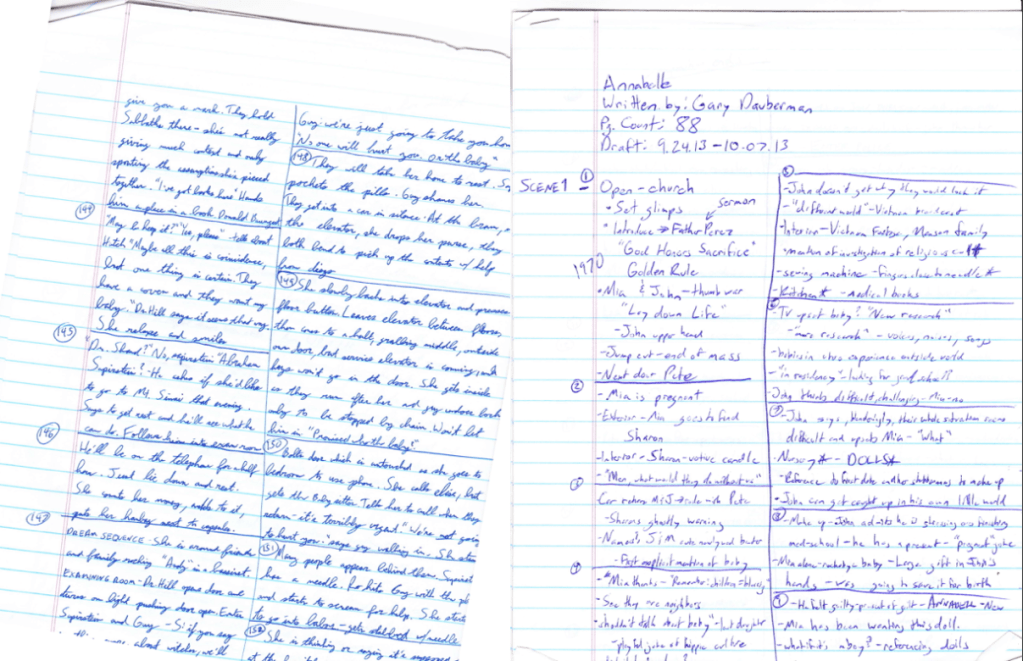 give you a mark. They hold
Sabbaths there - she's not really
giving much context and only
together. "I've got books here" Hands
him a place in a book. Donald
144
"May I keep it?" "Yes, please" - talk about
Hutch "Maybe all this is coincidence,
but one thing is certain. They
have a coven and they want my
baby." Dr. Hill says it seems that way.
She relaxes and smiles
145
"Dr. Shand?" No, Sapirstein "Abraham
Sapirstein". He asks if she'd like
to go to Mt. Sinai that evening.
Says to get rest and he'll see what he
can do. Follows him into exam room
146
He'll be on the telephone for half
hour. Just lie down and rest.
She counts her money, adds to it,
147
DREAM SEQUENCE - She is around friends
and family making "Andy" is a
EXAMINING ROOM - Dr Hill opens door and
turns on light pushing door open. Enter
Sapirstein and Guy - S: if you say
about witches, we'll
Guy: we're just going to take you home
"No one will hurt you. Or the baby"
148
They will take her home to rest. Sap
pockets the pills. Guy shaves her.
They get into a car in silence. At the bram,
the elevator, she drops her purse, they
both bend to pick up the contents w/ help
from diego
149
She slowly backs into elevator and presses
floor button. Leaves elevator between floors,
then runs to a hall, grabbing middle, outside
our door, but service elevator is coming, and
keys won't go in the door. She gets inside
as they run after her and guy undoes lock
only to be stopped by chain. Won't let
him in "Promised ho the baby!"
150
Bolts door which is untouched as she goes to
bedroom to use phone. She calls elise, but
gets the babysitter. Tells her to call when they
return - it's terribly urgent. "We're not going
to hurt you." says guy walking in. She
151
Many people appear behind them. Sapirstein
has a needle. Ro hits Guy with the
and starts to scream for help. She starts
to go into labor - gets w/ needle
152
She is thinking or saying it's supposed
Annabelle
Written by: Gary Dauberman
Pg. Count: 88
Draft: 9.24.13 - 10.07.13
SCENE 1 - 1
Open - church
• Set glimps
Sermon
• Introduce → Father Perez
"God Honors Sacrifice"
1970
Golden Rule
• Mia & John - thumb war
"Lay down Life"
- John upper hand
- Jump cut - end of mass
- Next door Pete
2
- Mia is pregnant
- Exterior - Mia goes to find
Sharon
- Interior - Sharon - votive candle
3
- "Men, what would they do without us"
Car return M&J → role - de Pete
- Sharons ghostly warning
- Names it Jim
- First explicit mention of baby
4
- "Mia thanks - Remember: children = blessing
- See they are neighbors
- shouldn't talk about baby" - lost daughter
- playful joke at hippie culture
5
- John doesn't get why they would lock it
- "different world" - Vietnam
- Interior - Vietnam Footage, Manson family
- mention of investigation of religious cult
- sewing machine - fingers close to needle*
- Kitchen* - medical books
6
- TV upset baby? "New research"
- "more research" - voices, noises, songs
- babies in utero experience outside world
- "in residency" - looking for good school?
- John thinks difficult, challenging - Mia - no
7
- John says, their whole situation more
difficult and upsets Mia - "What"
- Nursery* - DOLLS*
- Reference to first date another statements to make up
- John can get caught up in his own little world
8
- Make up - John admits he is stressing over
med-school - he has a present - "pregnant" joke
- Mia alone - makeup to baby - Large gift in John's
hands - was going to save it for birth
9
- He felt guilty - present gift - ANNABELLE - New
- Mia has been wanting this doll.
- what if it's a boy? - referencing dolls